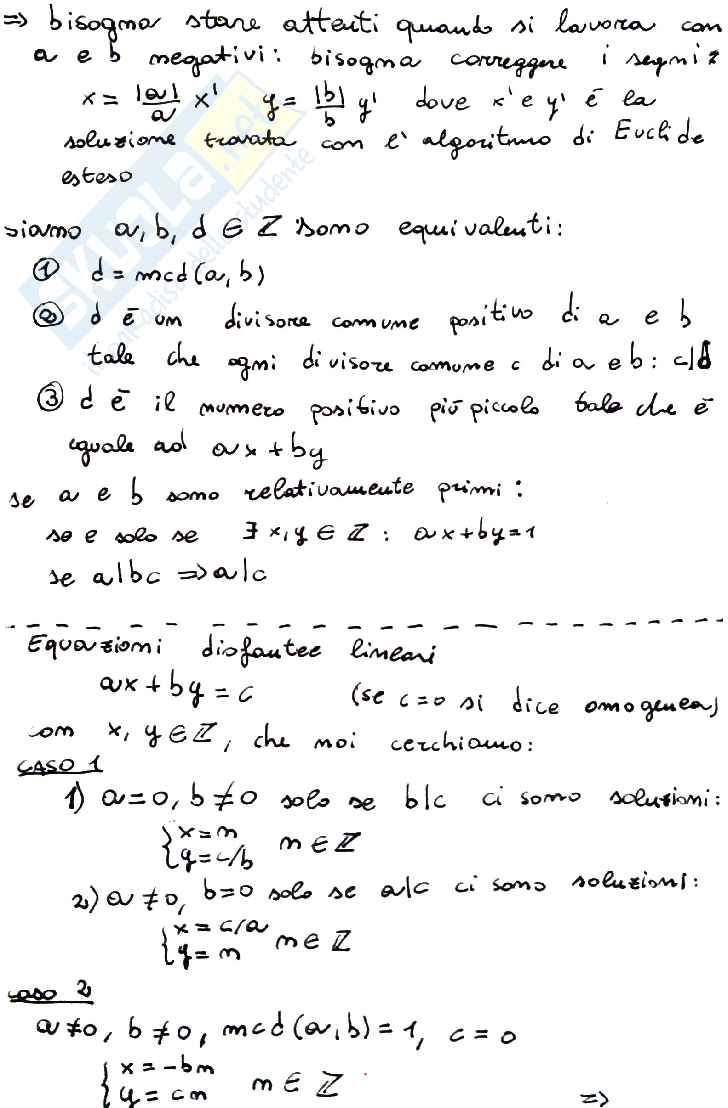 => bisogna stare attenti quando si lavora con
a e b negativi: bisogna correggere i segni:
x = |a|/a x' y = |b|/b y' dove x' e y' è la
soluzione trovata con l'algoritmo di Euclide
esteso
siamo a, b, d ∈ ℤ sono equivalenti:
① d = mcd(a, b)
② d è un divisore comune positivo di a e b
tale che ogni divisore comune c di a e b: c|d
③ d è il numero positivo più piccolo tale che è
eguale ad ax + by
se a e b sono relativamente primi:
se e solo se ∃ x, y ∈ ℤ : ax + by = 1
se a|bc => a|c
Equazioni diofantee lineari
ax + by = c (se c = 0 si dice omogenea)
con x, y ∈ ℤ, che noi cerchiamo:
CASO 1
1) a = 0, b ≠ 0 solo se b|c ci sono soluzioni:
{ x = n
{ y = c/b n ∈ ℤ
2) a ≠ 0, b = 0 solo se a|c ci sono soluzioni:
{ x = c/a
{ y = n n ∈ ℤ
caso 2
a ≠ 0, b ≠ 0, mcd(a, b) = 1, c = 0
{ x = -bn
{ y = an n ∈ ℤ
=>
SKUOLA.net